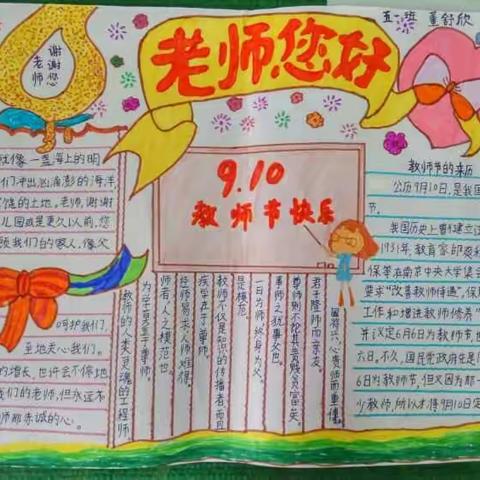 五一班 董舒欣
老师,您好
谢谢您
老师
9.10
教师节快乐
就像一盏海上的明
们冲出汹涌澎的海洋,
的土地,老师,谢谢
儿园或是更久以前,您
我们的家人,像火
呵护我们,
至地关心我们。
的增长,也许会不停地
我们的老师,但永远不
师那赤诚的心。
教师的节的来历
公历9月10日,是我国
节。
我国历史上曾建立过
1931年,教育家邰爽秋
保等在南京中央大学集会
要求“改善教师待遇”,保
工作和增进教师修养”
并议定6月6日为教师节,也
六日。不久,国民党政府在是
6日为教师节,但又因为那一
少教师,所以才得9月10日定
国将兴,必贵师而重傅。
君子隆师而亲友。
尊师则不论其贵贱贫富矣。
事师之犹事父也。
一日为师,终身为父。
是模范。
教师不仅是知识的传播者,而且
疾学在于尊师。
经师易求,人师难得。
师者,人之模范也。
为学莫重于尊师。
教师的人类灵魂的工程师。